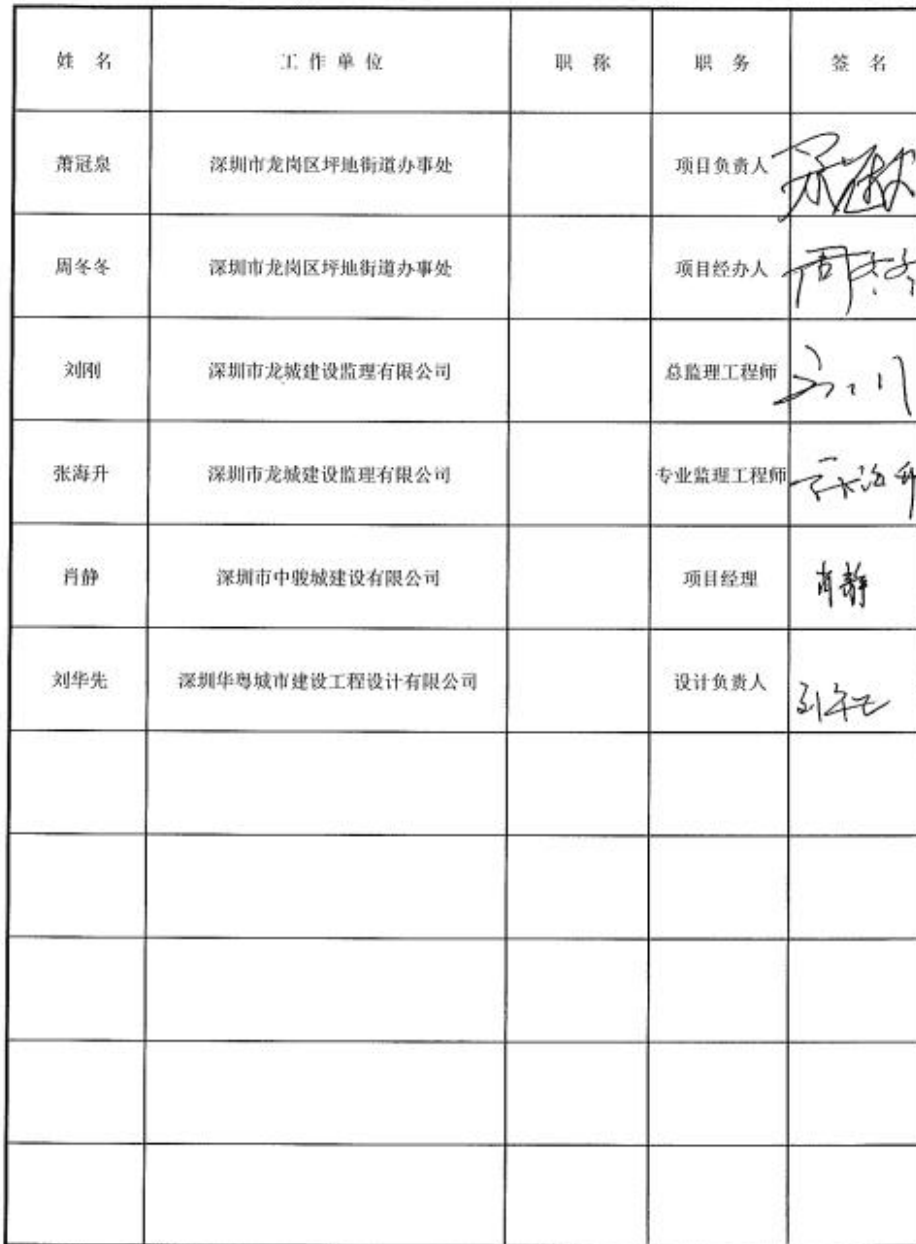 姓 名 工 作 单 位 职 称 职 务 签 名
萧冠泉 深圳市龙岗区坪地街道办事处 项目负责人
周冬冬 深圳市龙岗区坪地街道办事处 项目经办人 周冬冬
刘刚 深圳市龙城建设监理有限公司 总监理工程师
张海升 深圳市龙城建设监理有限公司 专业监理工程师
肖静 深圳市中骏城建设有限公司 项目经理 肖静
刘华先 深圳华粤城市建设工程设计有限公司 设计负责人